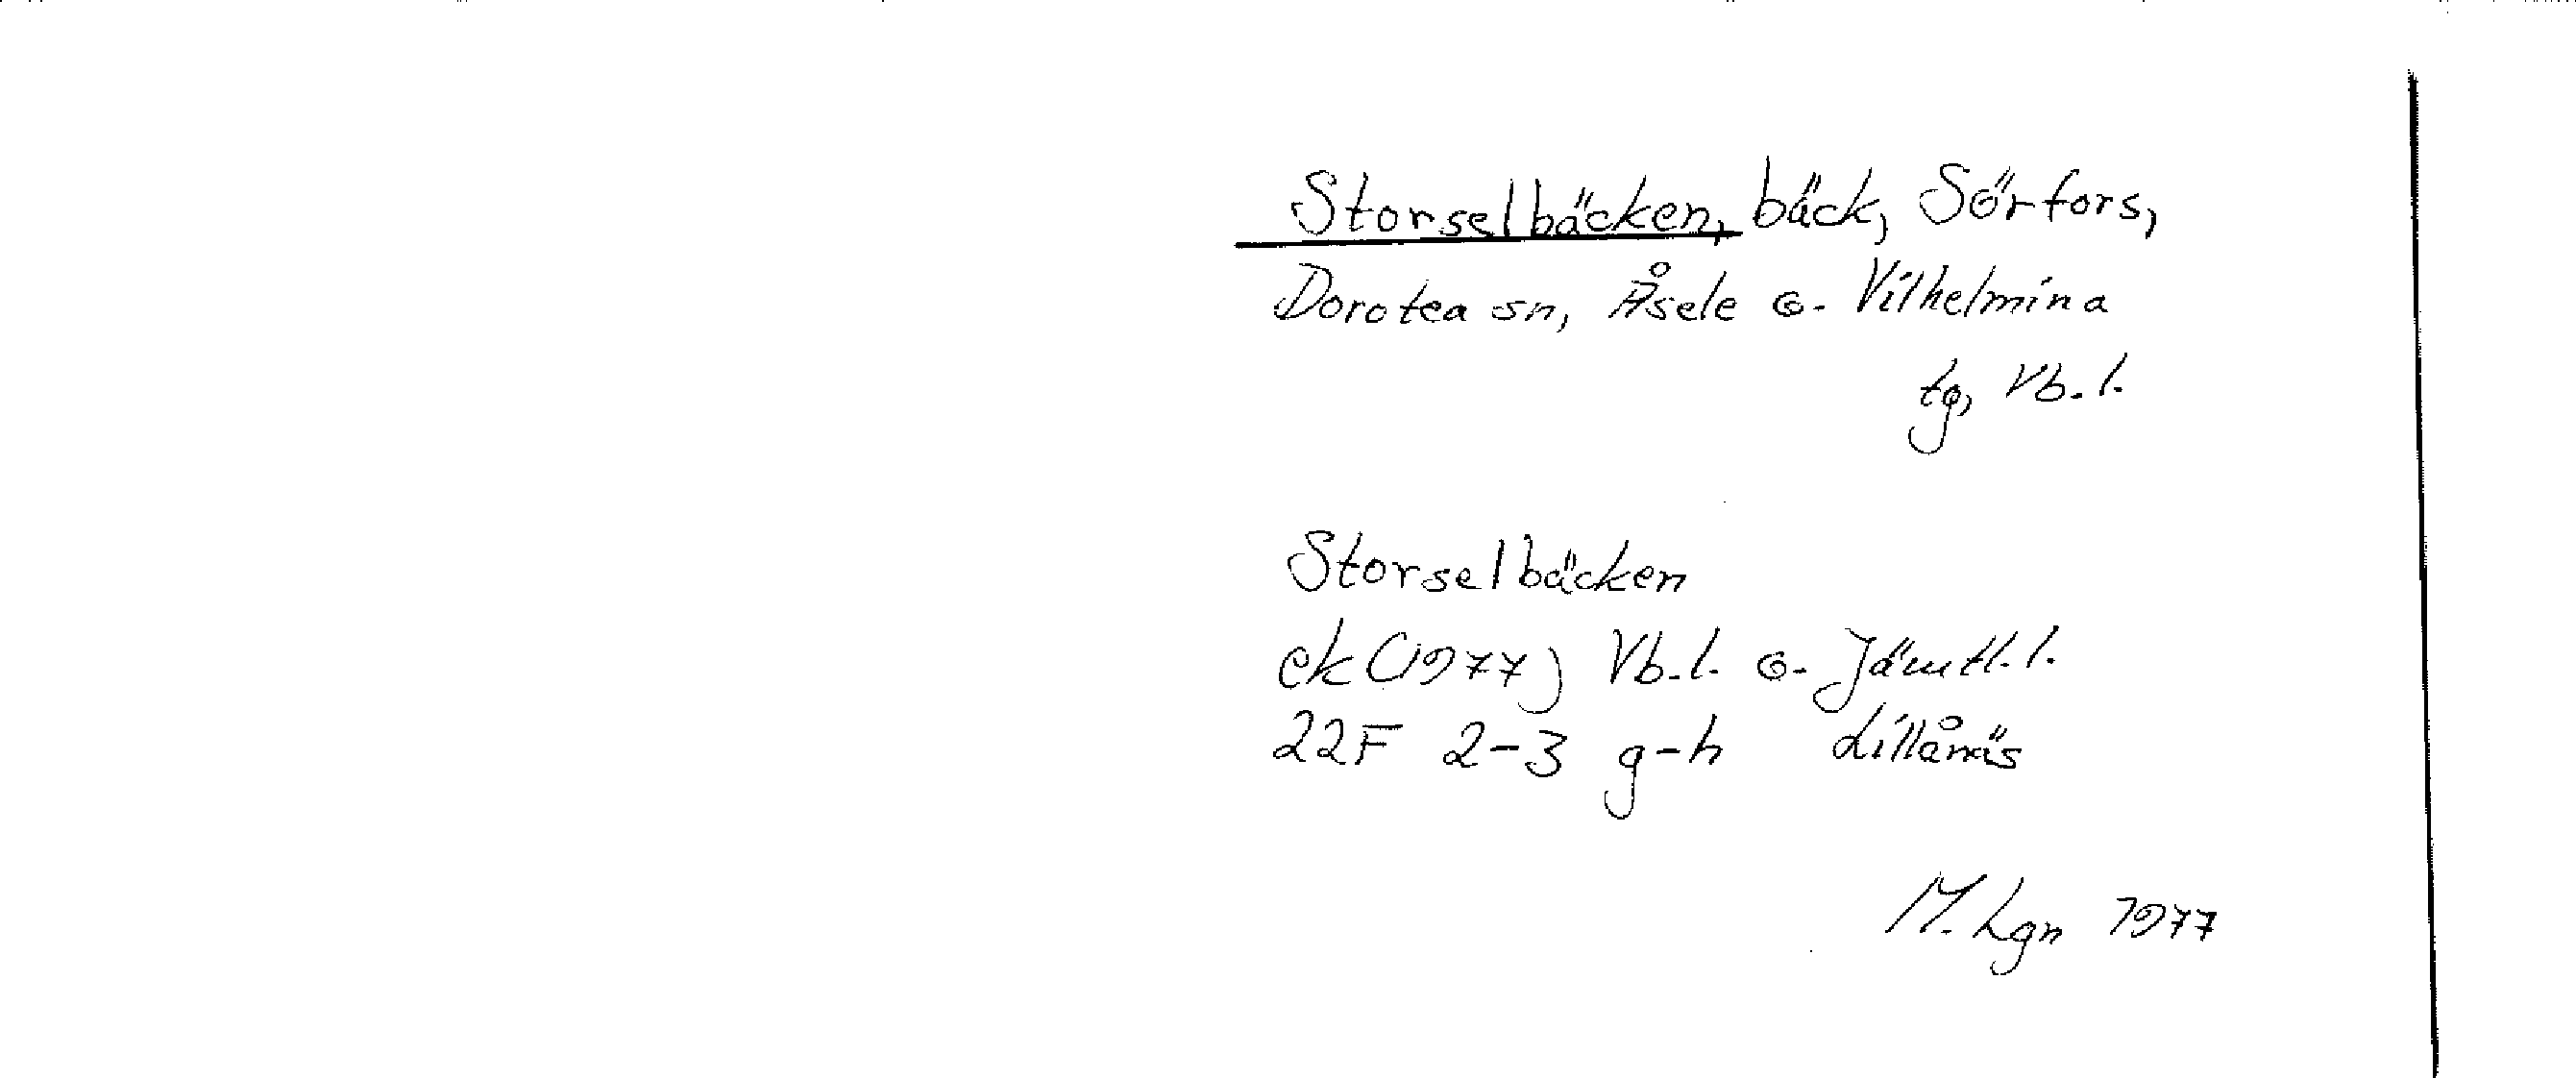 Storselbäcken, bäck, Sörfors,
Dorotea sn, Åsele o. Vilhelmina
tg, Vb. l.
Storselbäcken
ek (1977) Vb. l. o. Jämtl. l.
22F 2-3 g-h Lillånäs
M. Lgn 1977